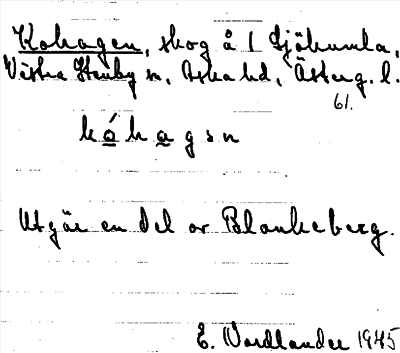 Kohagen, skog å 1 Sjökumla,
Västra Stenby sn, Aska hd, Österg. l.
61.
kóhagsn
Utgör en del av Blankeberg.
E. Nordlander 1945